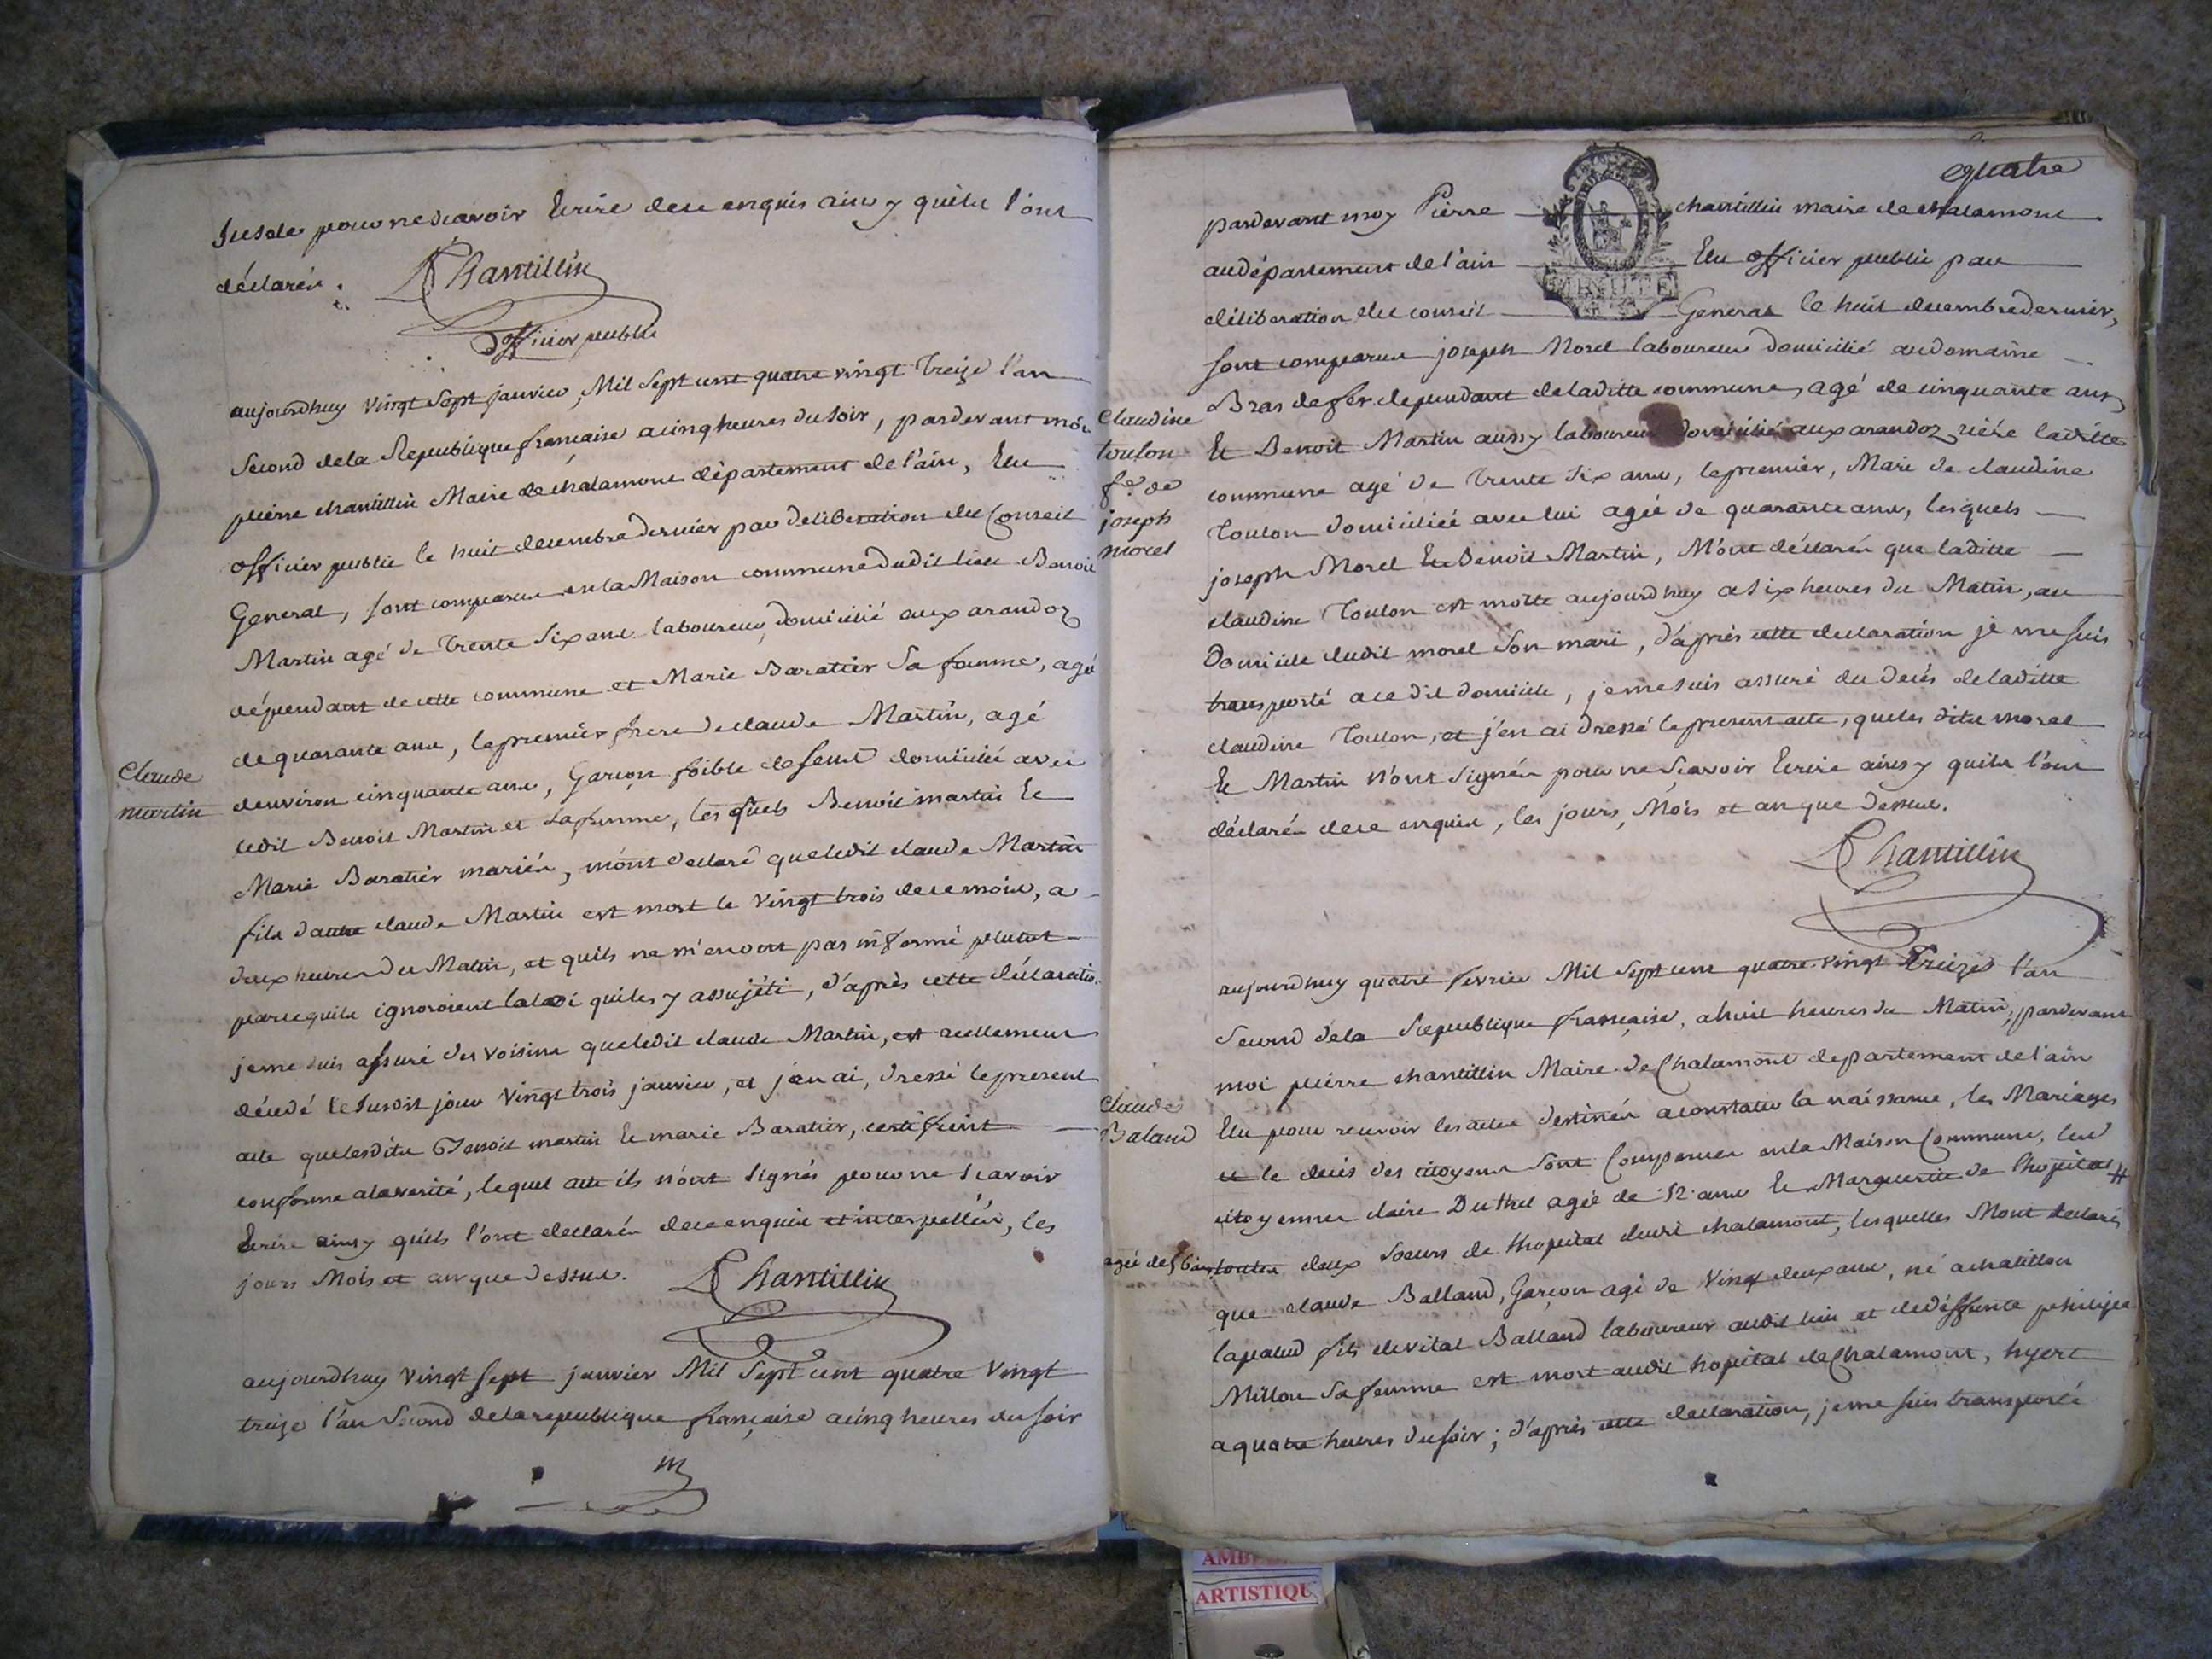 Susdes pour ne sçavoir Ecrire de ce enquis ainsy quils l'ont
déclarés. PChantillin
officier public
aujourdhuy vingt sept janvier, Mil sept cent quatre vingt treize l'an
second de la Republique française a cinq heures du soir, pardevant moi
pierre chantillin Maire de chalamont département de l'ain, Elu
officier public le huit decembre dernier par deliberation du Conseil
General, sont comparus en la Maison commune dudit lieu Benoit
Martin agé de trente six ans laboureur domicilié aux arandoz
dépendant de cette commune et Marie Baratier sa femme, agée
de quarante ans, le premier frere de claude Martin, agé
d'environ cinquante ans, Garçon foible de sens domicilié avec
ledit Benoit Martin et sa femme, lesquels Benoit martin Et
Marie Baratier mariés, m'ont déclaré que ledit claude Martin
fils d'autre claude Martin est mort le vingt trois de ce mois, a
deux heures du Matin, et quils ne m'en ont pas informé plutot
parcequils ignoroient la loi qui les y assujéti, d'après cette déclaration
je me suis assuré des voisins que ledit claude Martin, est reellement
décédé le susdit jour vingt trois janvier, et j'en ai, dressé le present
acte que lesdits Benoit martin Et marie Baratier, certifient
conforme a la verité, lequel acte ils n'ont signés pour ne scavoir
Ecrire ainsy quils l'ont declarés de ce enquis et interpellés, les
jours Mois et an que dessus. PChantillin
aujourdhuy vingt sept janvier Mil sept cent quatre vingt
treize l'an second de la republique française a cinq heures du soir
Claude
martin
quatre
pardevant moy Pierre chantillin maire de chalamont
au département de l'ain Elu officier public par
déliberation du conseil General le huit decembre dernier,
sont comparus joseph Morel laboureur domicilié au domaine
Bras de fer dependant de laditte commune, agé de cinquante ans,
Et Benoit Martin aussy laboureur domicilié aux arandoz riére laditte
commune agé de trente six ans, le premier, Mari de claudine
Toulon domiciliée avec lui agée de quarante ans, lesquels
joseph Morel Et Benoit Martin, M'ont déclarés que laditte
claudine Toulon est morte aujourdhuy a six heures du Matin, au
Domicile dudit morel son mari, d'après cette declaration je me suis
transporté a ce dit domicile, je me suis assuré du decés de laditte
claudine Toulon, et j'en ai dressé le present acte, que les dits morel
Et Martin n'ont signés pour ne sçavoir Ecrire ainsy quils l'ont
déclarés de ce enquis, les jours, Mois et an que dessus.
PChantillin
Claudine
toulon
fe. de
joseph
morel
aujourdhuy quatre fevrier Mil sept cent quatre vingt Treize l'an
second de la Republique française, a huit heures du Matin, pardevant
moi pierre chantillin Maire de Chalamont departement de l'ain
Elu pour recevoir les actes destinés a constater la naissance, les Mariages
et le decés des citoyens sont Comparues en la Maison Commune, les
citoyennes claire Duthel agée de 52 ans Et Marguerite de l'hopital #
toutes deux soeurs de l'hopital dudit chalamont, lesquelles M'ont declarés
que claude Balland, Garçon agé de vingt deux ans, né a chatillon
lapalud fils de vital Balland laboureur audit lieu et de déffunte philipe
Millon sa femme est mort audit hopital de Chalamont, hyert
a quatre heures du soir; d'après cette declaration, je me suis transporté
Claude
Baland
ARTISTIQU